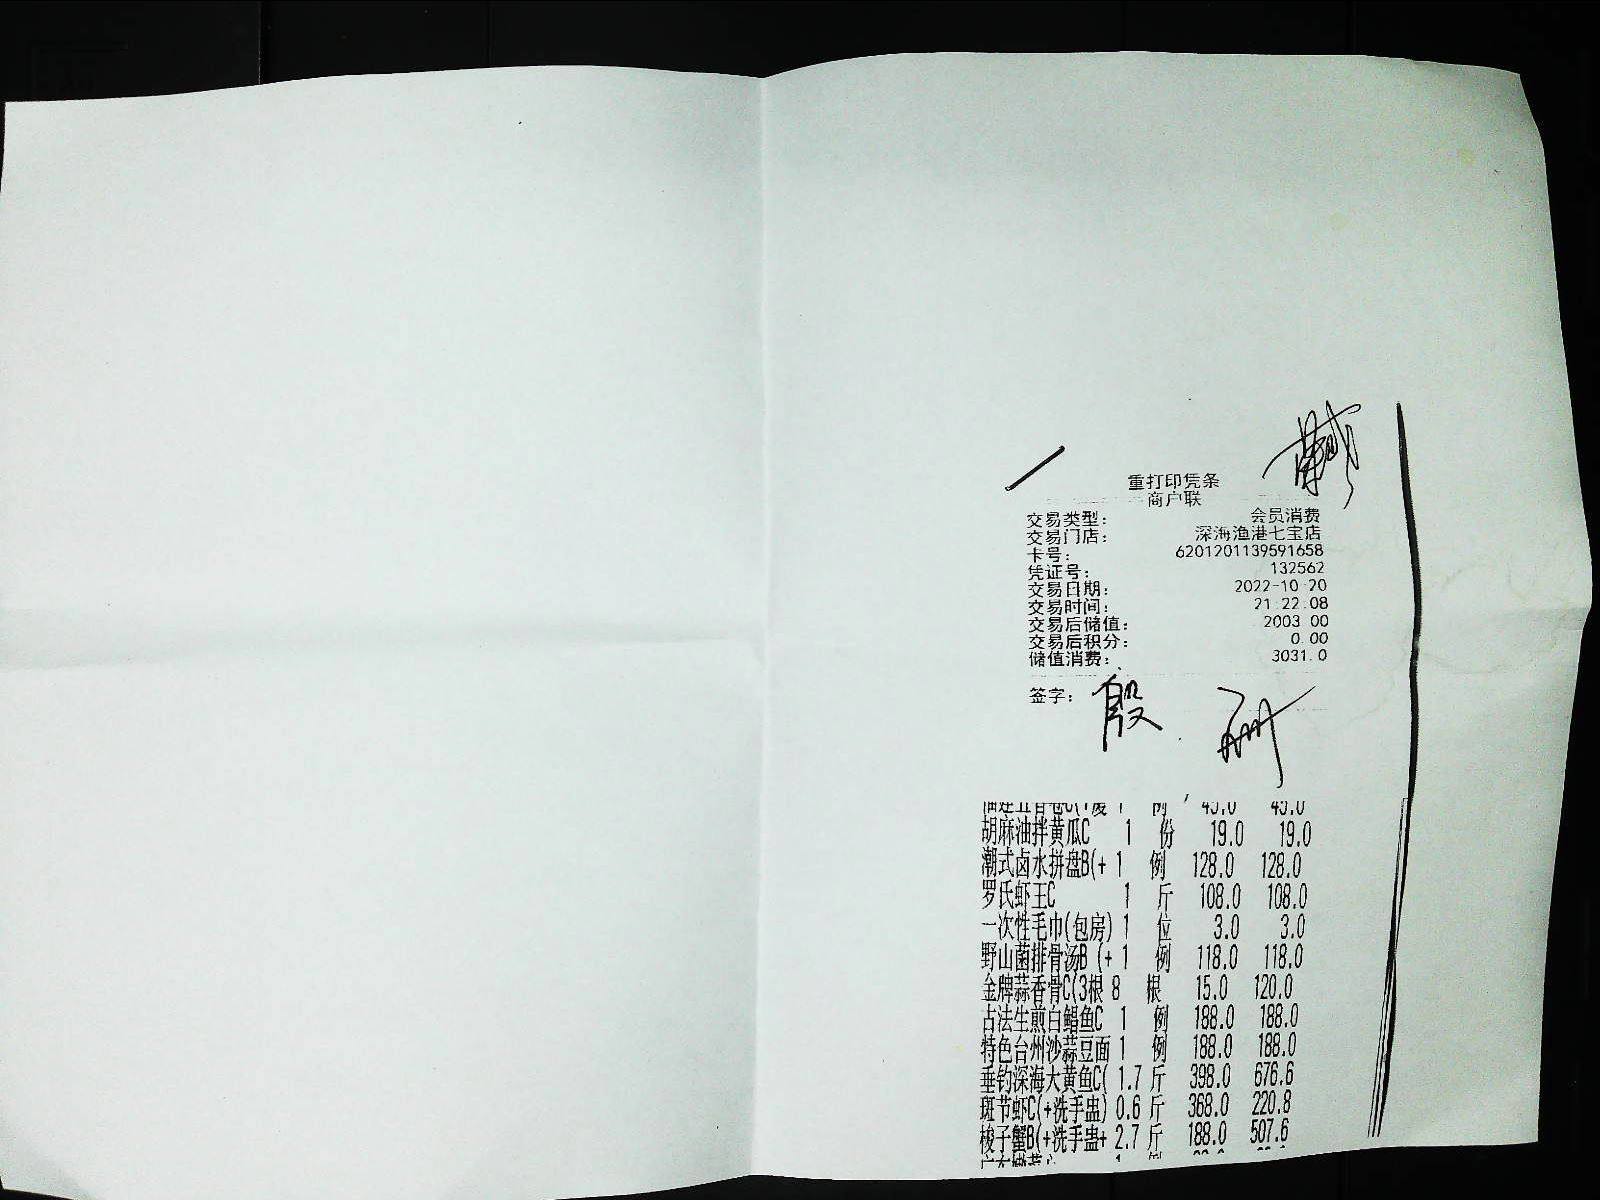 重打印凭条
商户联
交易类型: 会员消费
交易门店: 深海渔港七宝店
卡号: 6201201139591658
凭证号: 132562
交易日期: 2022-10-20
交易时间: 21:22:08
交易后储值: 2003.00
交易后积分: 0.00
储值消费: 3031.0
签字: 殷
胡麻油拌黄瓜C 1 份 19.0 19.0
潮式卤水拼盘B(+ 1 例 128.0 128.0
罗氏虾王C 1 斤 108.0 108.0
一次性毛巾(包房) 1 位 3.0 3.0
野山菌排骨汤B (+ 1 例 118.0 118.0
金牌蒜香骨C(3根 8 根 15.0 120.0
古法生煎白鲳鱼C 1 例 188.0 188.0
特色台州沙蒜豆面 1 例 188.0 188.0
垂钓深海大黄鱼C( 1.7 斤 398.0 676.6
斑节虾C(+洗手盅) 0.6 斤 368.0 220.8
梭子蟹B(+洗手盅+ 2.7 斤 188.0 507.6